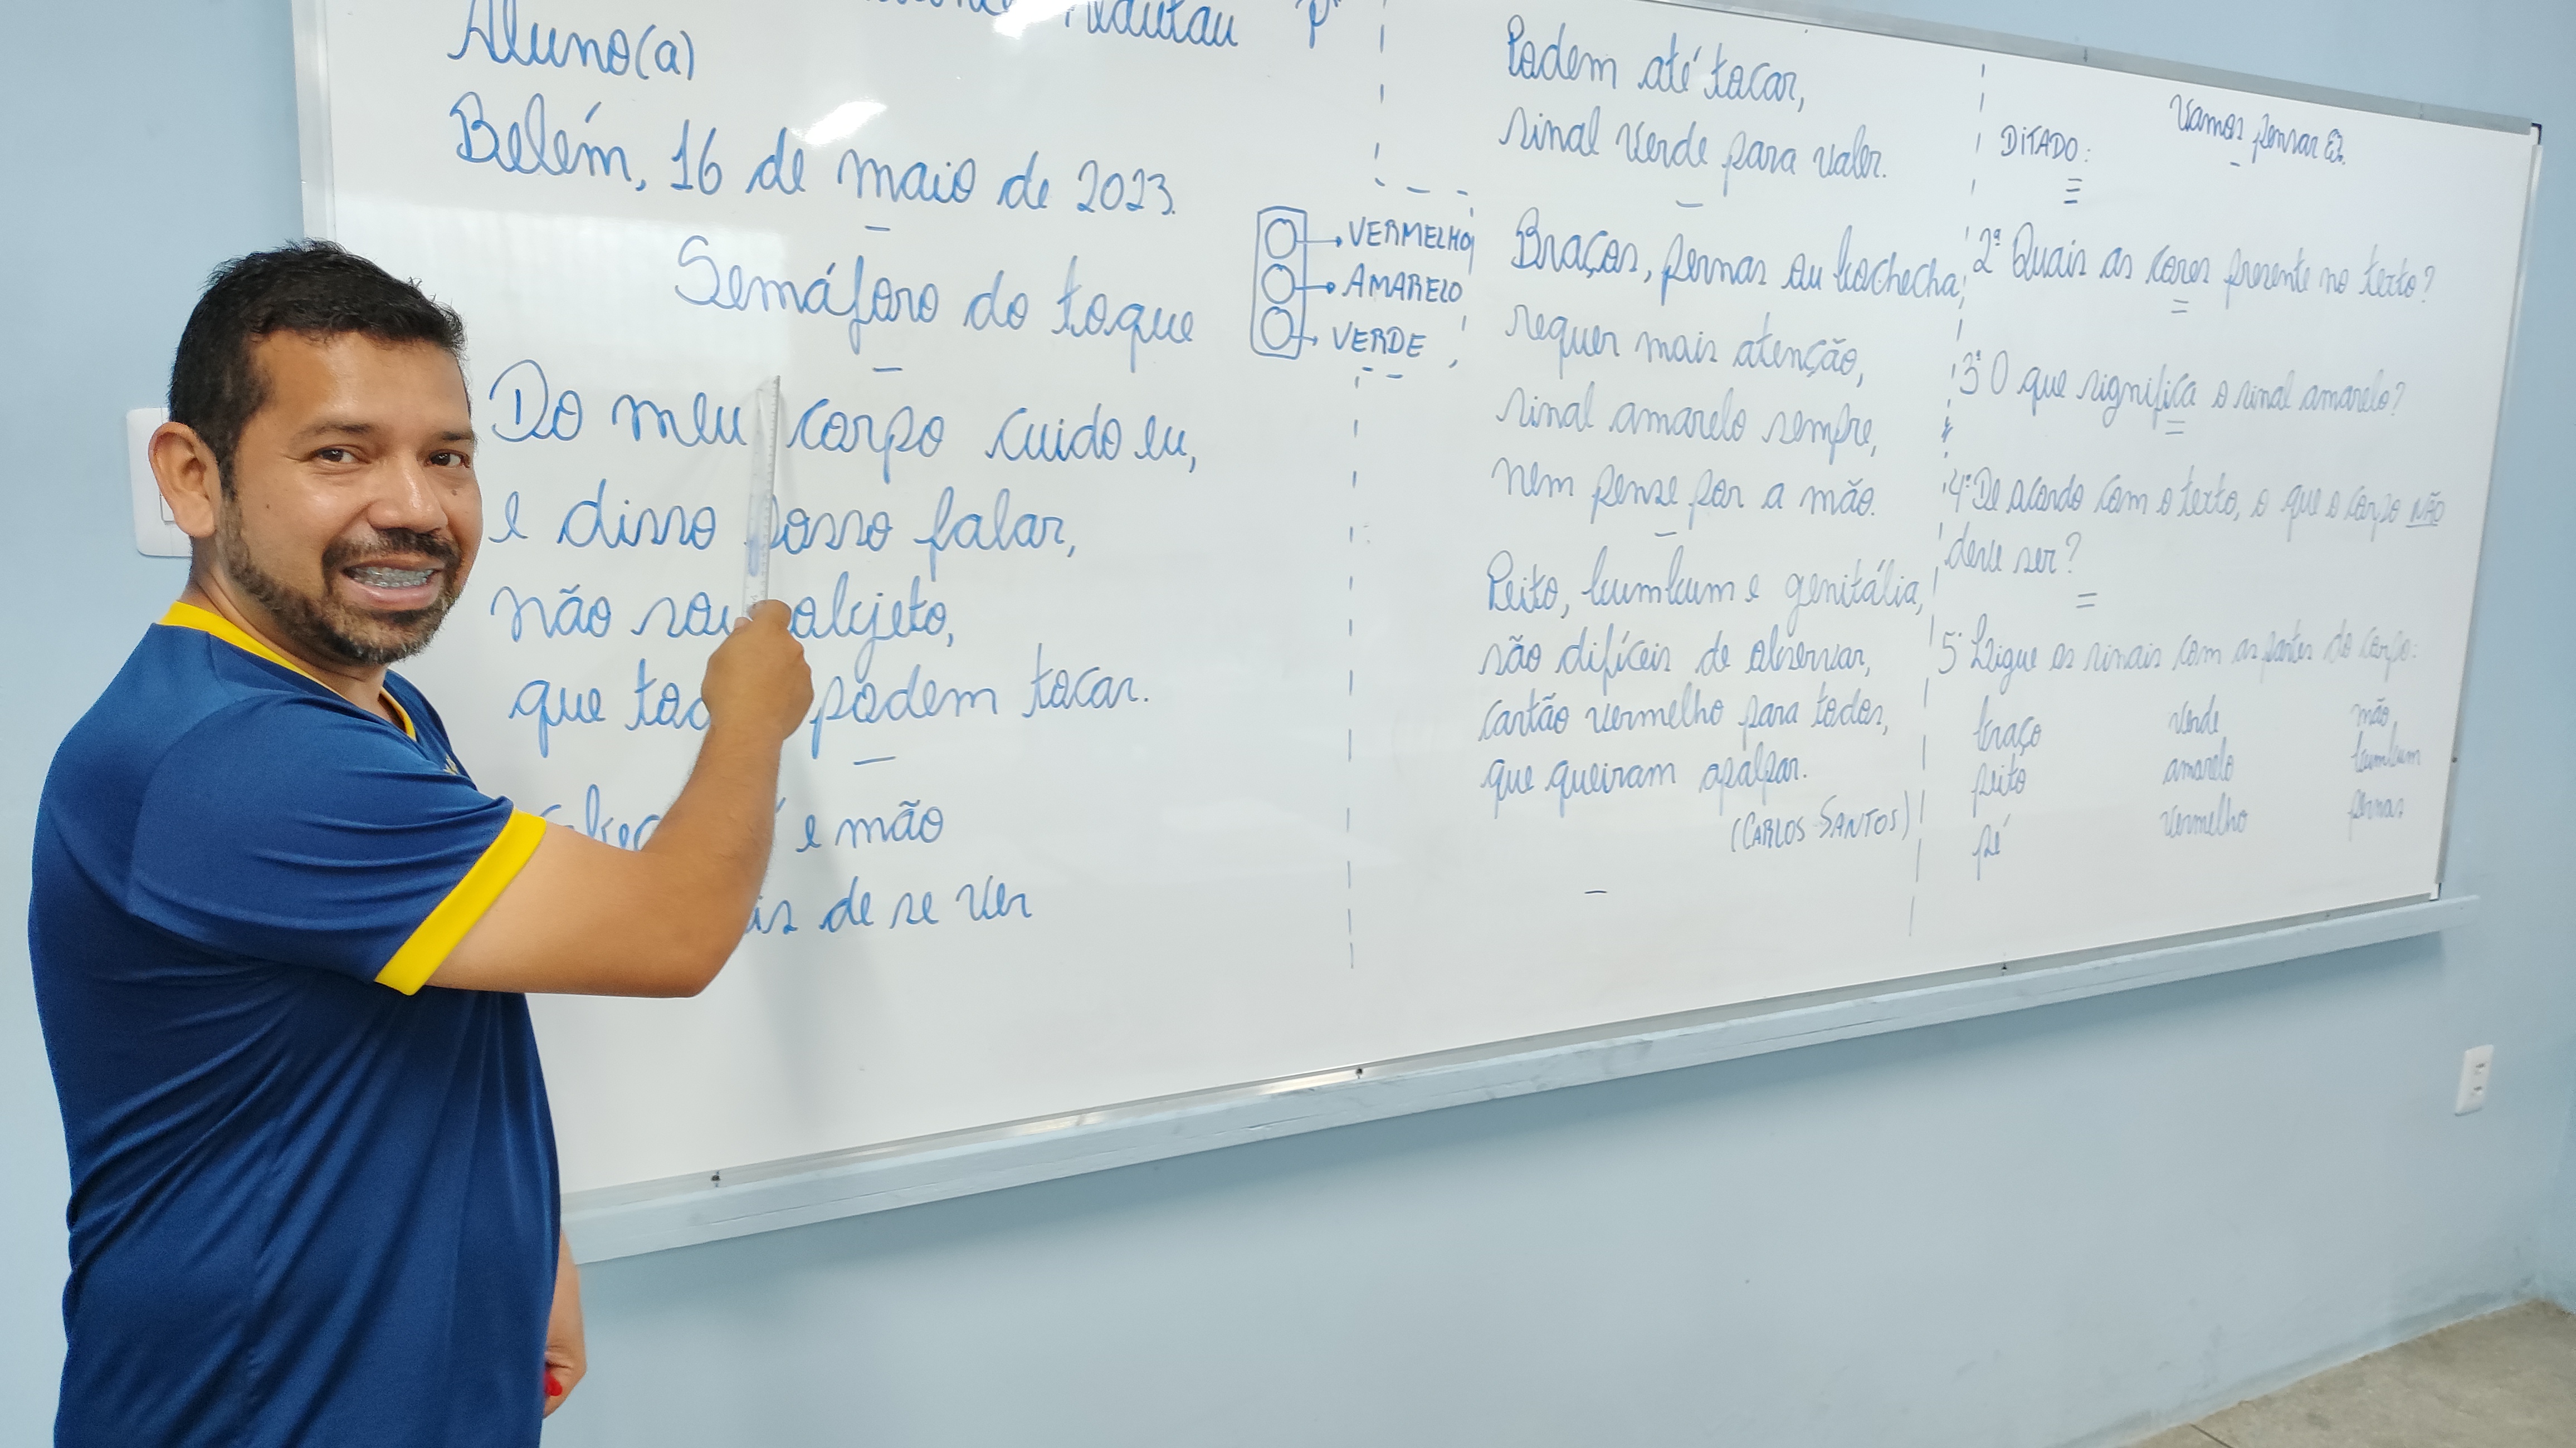 Aluno(a)
Belém, 16 de maio de 2023.
Semáforo do toque
VERMELHO
AMARELO
VERDE
Do meu corpo cuido eu,
e disso posso falar,
não sou objeto,
que podem tocar.
e mão
de se ver
Podem até tocar,
sinal verde para valer.
Braços, pernas ou bochecha,
requer mais atenção,
sinal amarelo sempre,
nem pense por a mão.
Peito, bumbum e genitália,
são difíceis de observar,
cartão vermelho para todos,
que queiram apalpar.
(CARLOS SANTOS)
Vamos pensar
DITADO:
2ª Quais as cores presente no texto?
3ª O que significa o sinal amarelo?
4ª De acordo com o texto, o que o corpo NÃO
deve ser?
5ª Ligue os sinais com as partes do corpo:
braço verde mão
peito amarelo bumbum
pé vermelho pernas